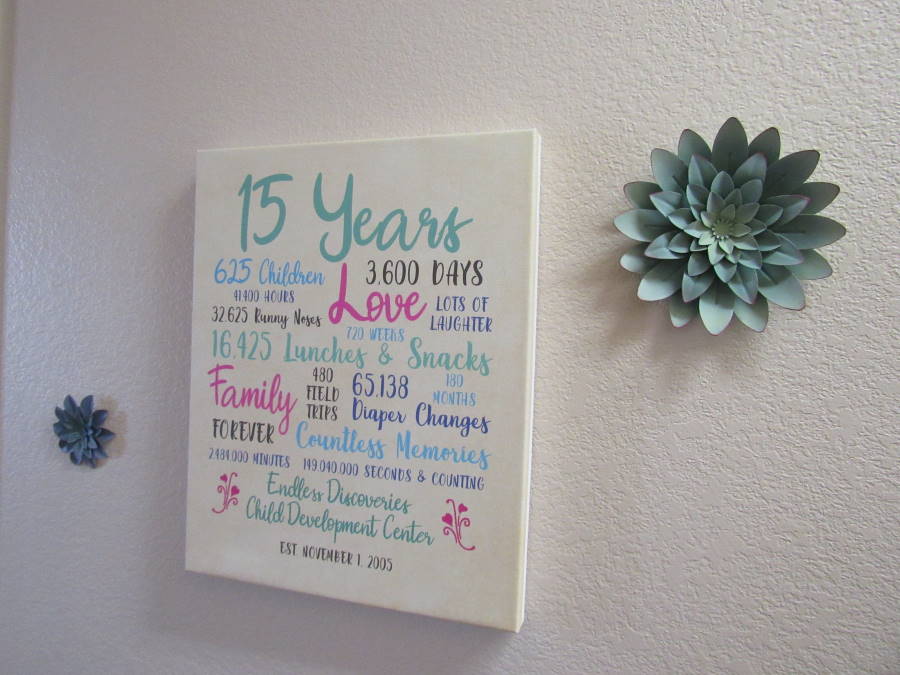 15 Years
625 Children
3,600 DAYS
41400 HOURS
Love
LOTS OF
LAUGHTER
32.625 Runny Noses
720 WEEKS
16,425 Lunches & Snacks
Family
480
FIELD
TRIPS
65,138
Diaper Changes
180
MONTHS
FOREVER
Countless Memories
2484,000 MINUTES
149,040,000 SECONDS & COUNTING
Endless Discoveries
Child Development Center
EST. NOVEMBER 1, 2005